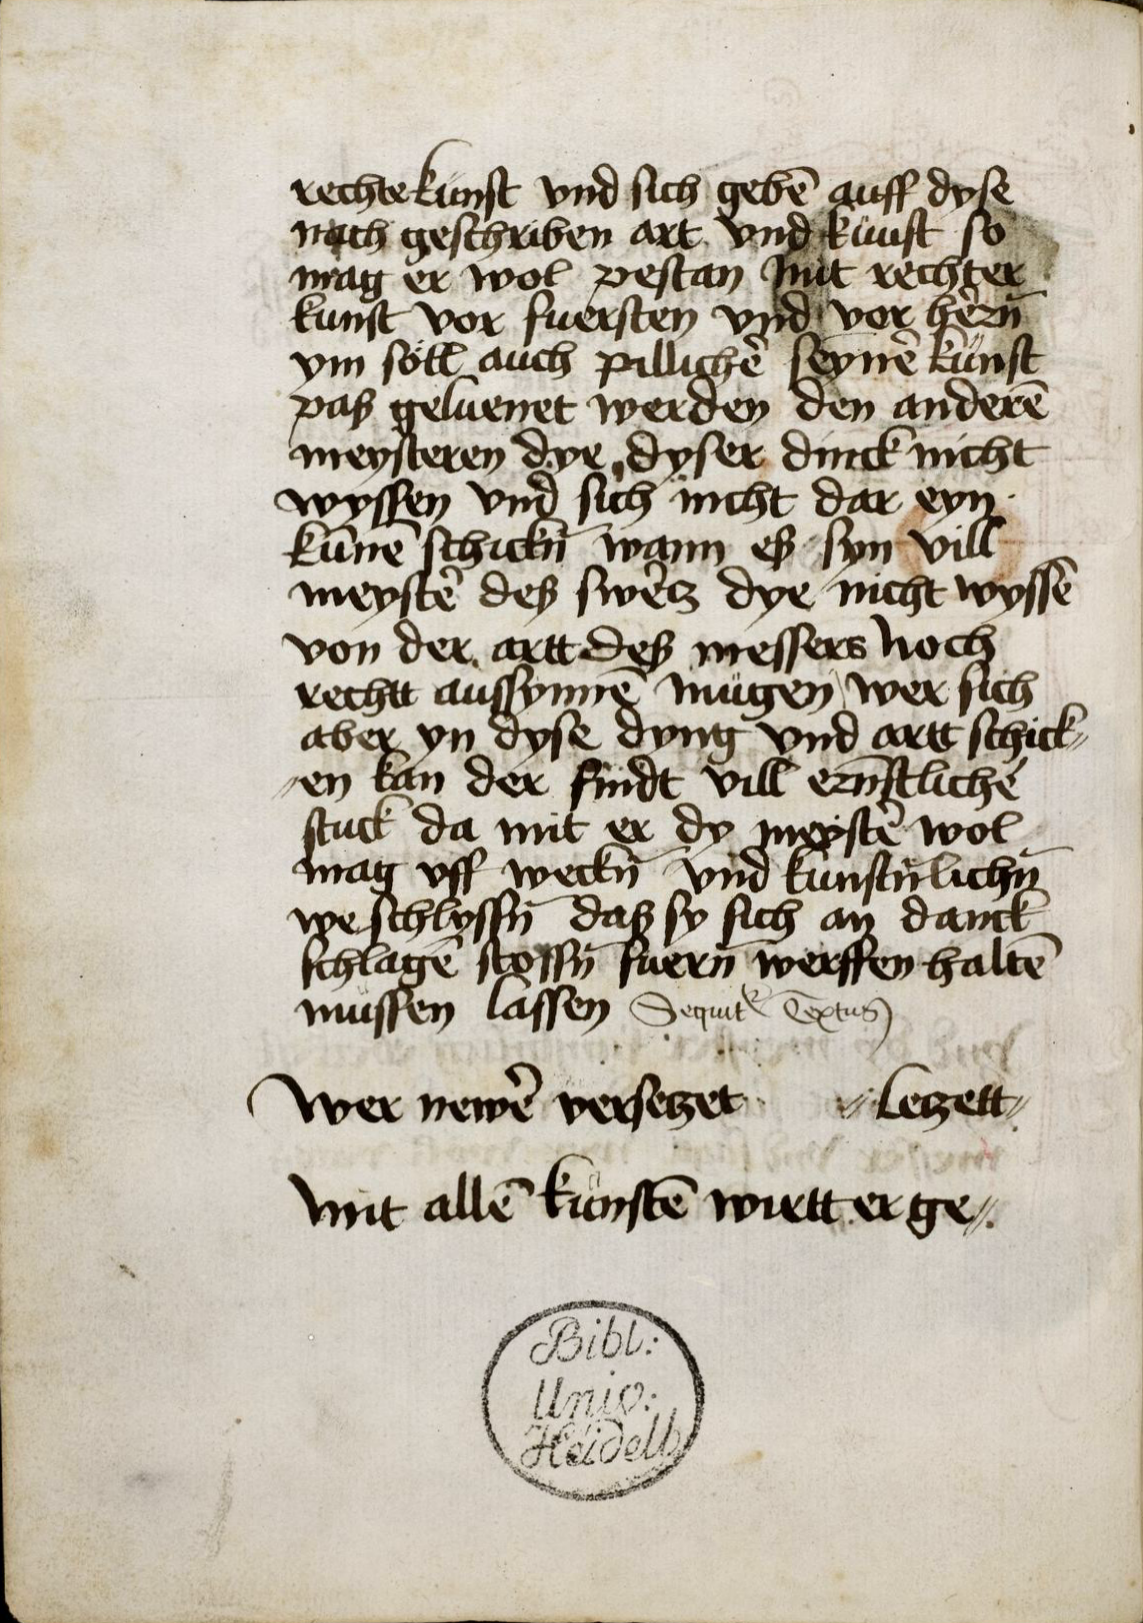 rechte kunst vnd sich gebē auff dyse
nach geschriben art vnd kunst so
mag er wol pestan mit rechter
kunst vor fuersten vnd vor hern̄
ym söll auch pillichē seynē kunst
paß geluenet werden den anderē
meysteren dye dyser dinck nicht
wyssen vnd sich nicht dar eyn
kūnē schickn̄ wann eß syn vill
meystē deß swētz dye nicht wyssē
von der artt deß messers noch
rechtt aussynnē mügen wer sich
aber yn dyse dyng vnd artt schick〃
〃en kan der findt vill ern̄stlichē
stuck da mit er dy meystē wol
mag vff weckn̄ vnd kunstn̄lichn̄
we schlyssn̄ daß sy sich an danck
schlagē stossn̄ fuern̄ werffen haltē
mussen lassen Sequit Textus
Wer newē versetzet 〃letzett〃
Mit allē kunstē wirtt er ge〃
Bibl:
Univ:
Heidelb